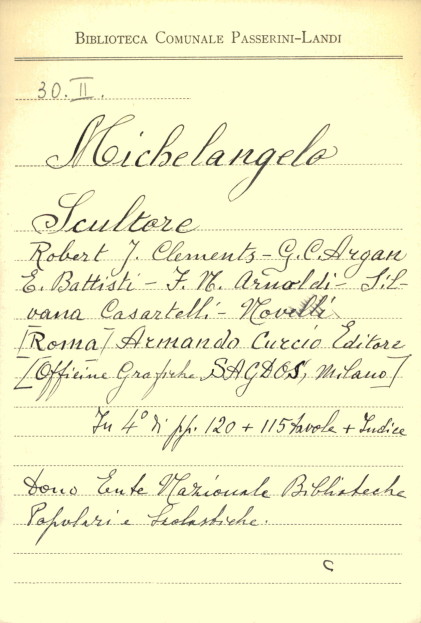 BIBLIOTECA COMUNALE PASSERINI-LANDI
30. II.
Michelangelo
Scultore
Robert J. Clements - G. C. Argan
E. Battisti - F. N. Arnoldi - Sil-
vana Casartelli - Novelli
[Roma] Armando Curcio Editore
[Officine Grafiche SAGDOS, Milano]
In 4° di pp. 120 + 115 tavole + Indice
Dono Ente Nazionale Biblioteche
Popolari e Scolastiche.
C